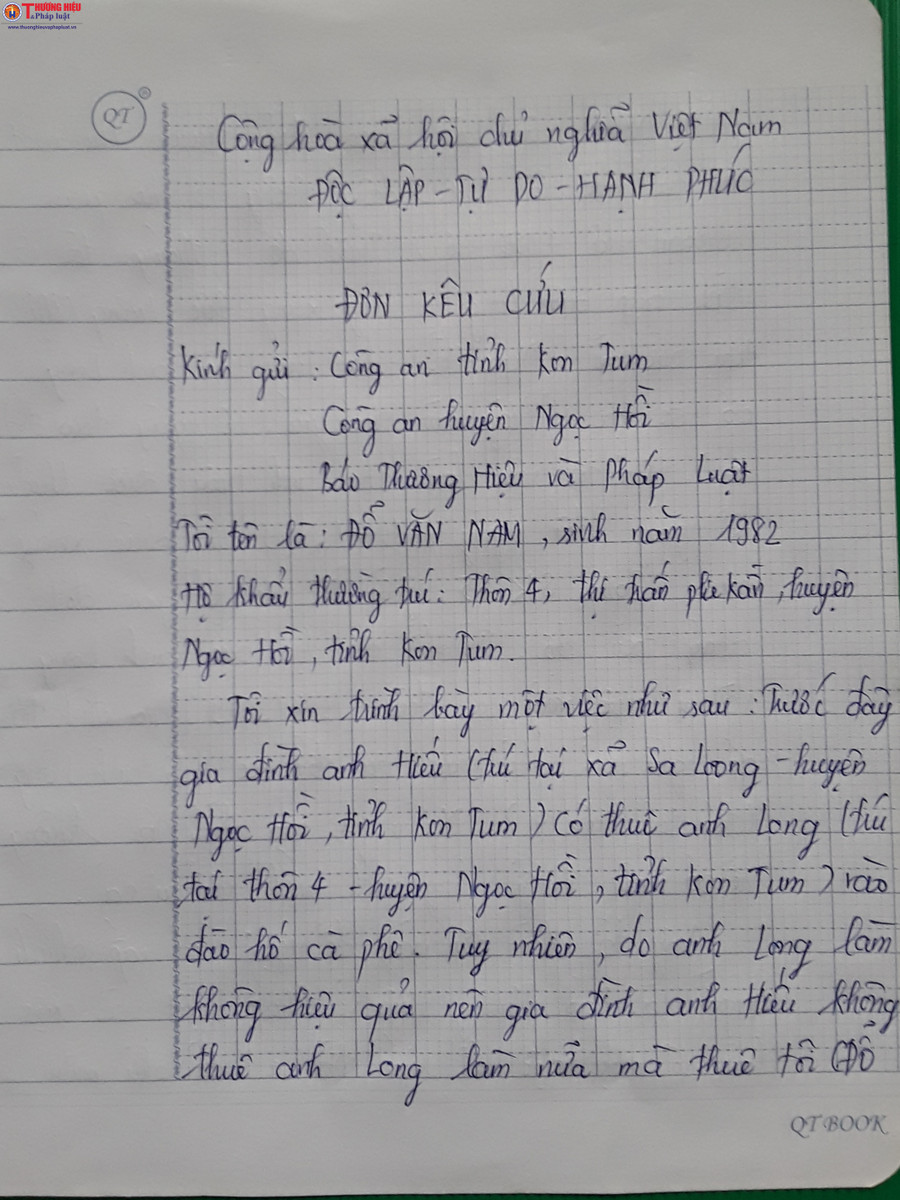 THƯƠNG HIỆU
& Pháp luật
www.thuonghieuvaphapluat.vn
QT
Cộng hoà xã hội chủ nghĩa Việt Nam
ĐỘC LẬP - TỰ DO - HẠNH PHÚC
ĐƠN KÊU CỨU
Kính gửi : Công an tỉnh Kon Tum
Công an huyện Ngọc Hồi
Báo Thương Hiệu và Pháp Luật
Tôi tên là : ĐỖ VĂN NAM , sinh năm 1982
Hộ khẩu thường trú : Thôn 4, thị trấn plei kần , huyện
Ngọc Hồi , tỉnh Kon Tum.
Tôi xin trình bày một việc như sau : Trước đây
gia đình anh Hiếu (trú tại xã Sa Loong - huyện
Ngọc Hồi , tỉnh Kon Tum ) có thuê anh Long (trú
tại thôn 4 - huyện Ngọc Hồi , tỉnh Kon Tum ) vào
đào hố cà phê . Tuy nhiên , do anh Long làm
không hiệu quả nên gia đình anh Hiếu không
thuê anh Long làm nữa mà thuê tôi (Đỗ
QT BOOK